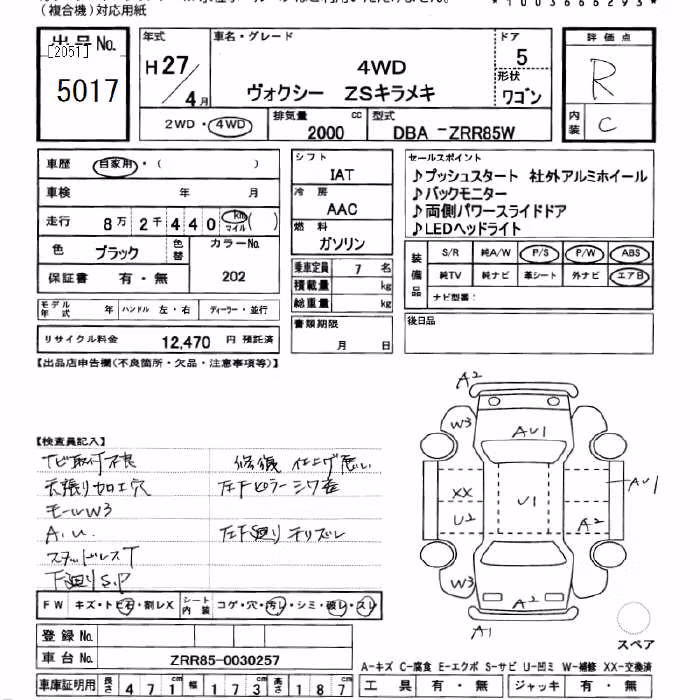 （複合機）対応用紙
*1003666293*
出品No.
[2051]
5017
年式
H27/4月
車名・グレード
4WD
ヴォクシー ZSキラメキ
ドア
5
形状
ワゴン
評価点
R
内装
C
2WD・4WD
排気量
2000 cc
型式
DBA -ZRR85W
車歴 自家用・( )
車検 年 月
走行 8万2千440 km マイル ( )
色 ブラック 色替 カラーNo. 202
保証書 有・無
モデル年式 年 ハンドル 左・右 ディーラー・並行
リサイクル料金 12,470 円 預託済
シフト
IAT
冷房
AAC
燃料
ガソリン
乗車定員 7 名
積載量 kg
総重量 kg
書類期限
月 日
セールスポイント
♪プッシュスタート 社外アルミホイール
♪バックモニター
♪両側パワースライドドア
♪LEDヘッドライト
装備品
S/R 純A/W P/S P/W ABS
純TV 純ナビ 革シート 外ナビ エアB
ナビ型番:
後日品
【出品店申告欄(不良箇所・欠品・注意事項等)】
【検査員記入】
ナビ取付不良
天張り加工穴
モールW3
A.U.
スタッドレスT
下廻りS.P
修復 仕上げ悪い
左Fピラーシワ
左下廻り
A2
W3
AU1
XX
U1
U2
A2
AU1
W3
A2
A1
FW キズ・トビ石・割レX シート内装 コゲ・穴・汚レ・シミ・破レ・スレ
登録No.
車台No. ZRR85-0030257
車庫証明用 長さ 471cm 幅 173cm 高さ 187cm
スペア
A-キズ C-腐食 E-エクボ S-サビ U-凹ミ W-補修 XX-交換済
工具 有・無 ジャッキ 有・無